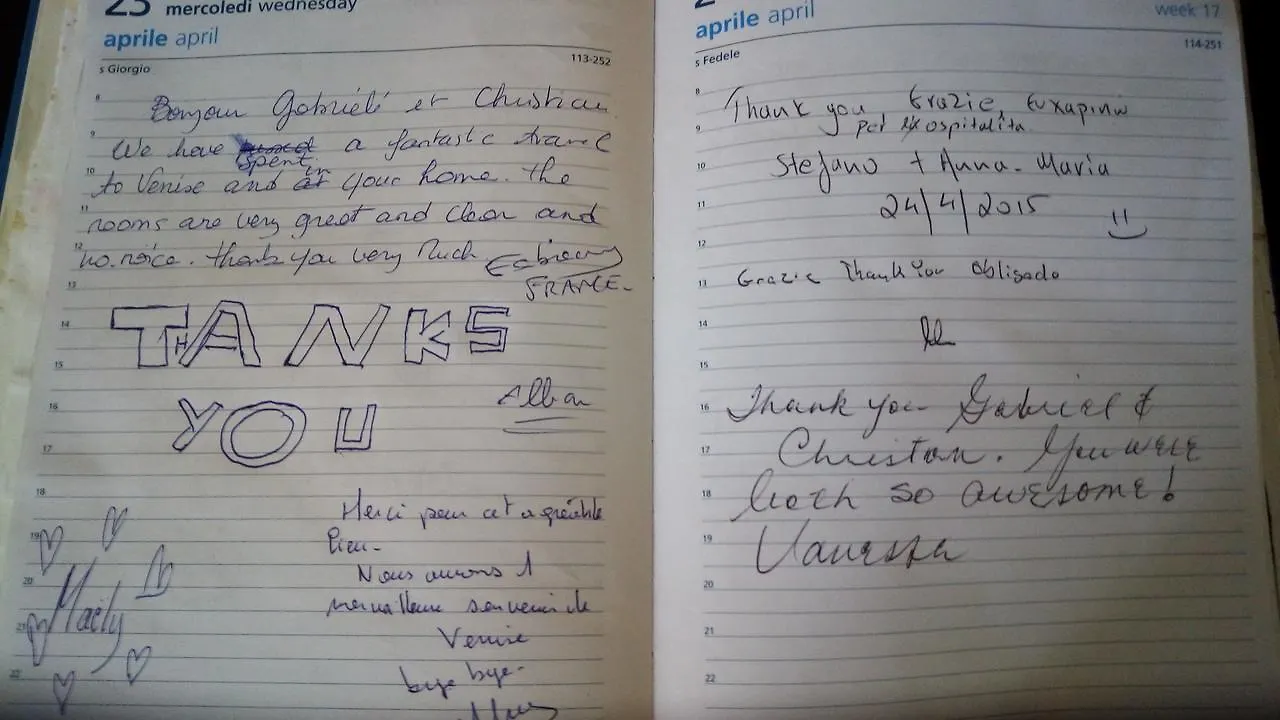 23 mercoledì wednesday
aprile april
s Giorgio 113-252
Bonjour Gabriélé et Christian
We have spent a fantastic travel
to Venise and in your home. the
rooms are very great and clean and
no noice. thank you very Much
FRANCE-
THANKS
YOU
Alban
Merci pour cet agréable
lieu-
Nous aurons 1
merveilleux souvenir de
Venise
bye bye-
Maëly
8
9
10
11
12
13
14
15
16
17
18
19
20
21
22
aprile april week 17
s Fedele 114-251
Thank you Grazie, Ευχαριστώ
per ospitalita
Stefano + Anna-Maria
24/4/2015
Grazie Thank You Obligado
Thank you Gabriel &
Christan. You were
both so awesome!
Vanessa
8
9
10
11
12
13
14
15
16
17
18
19
20
21
22